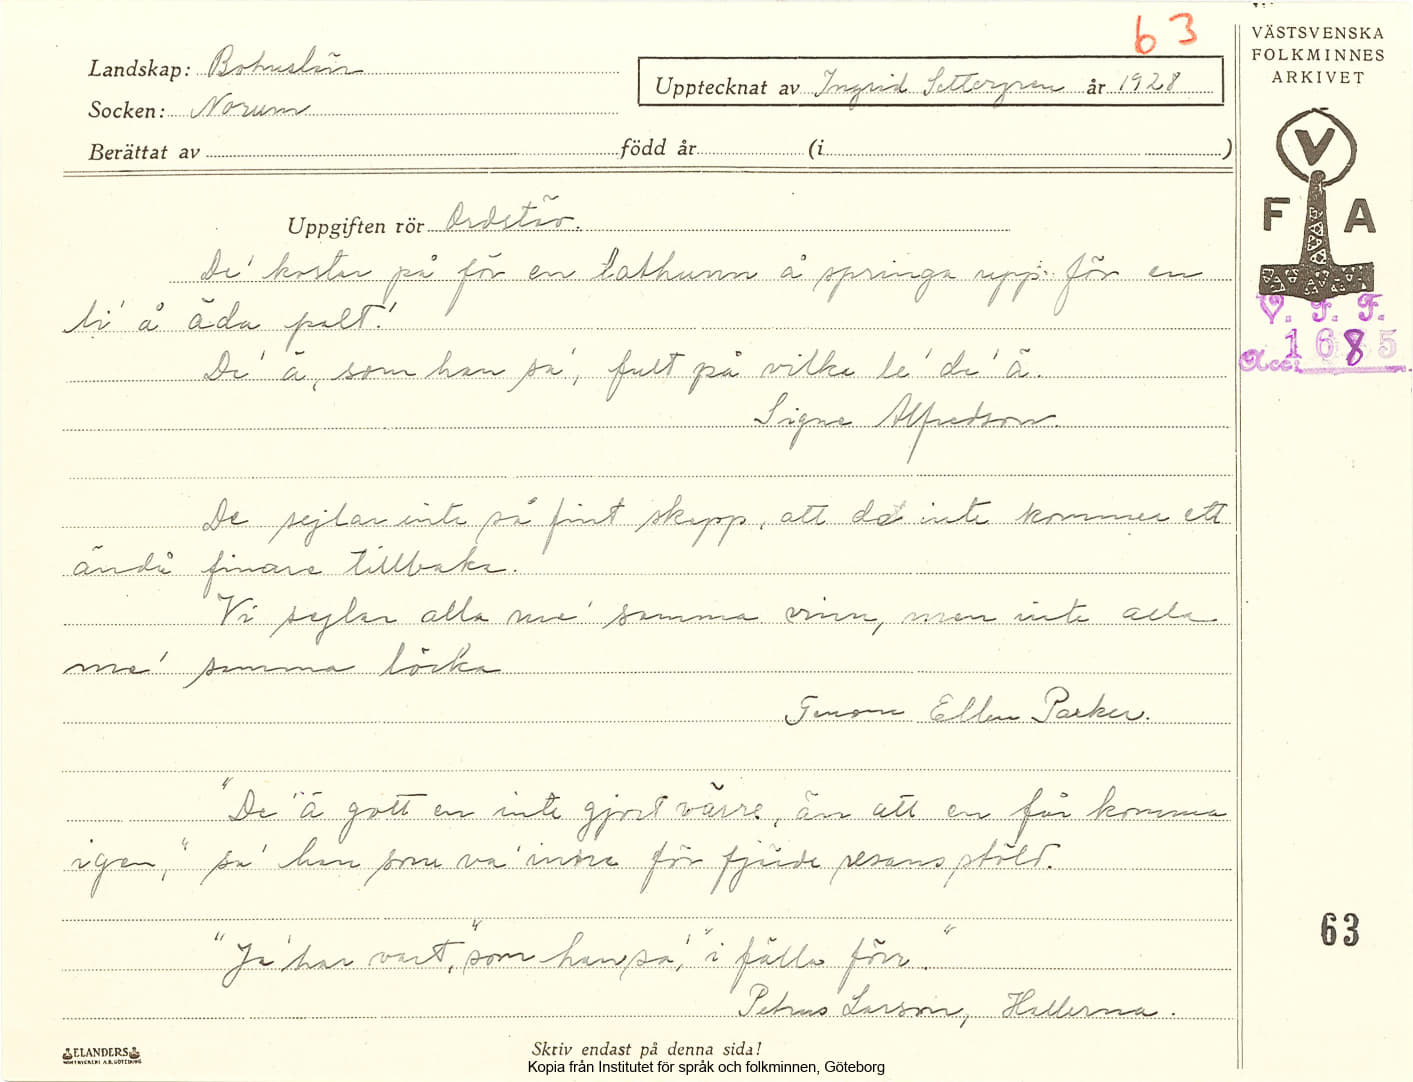 63
VÄSTSVENSKA
FOLKMINNES
ARKIVET
Landskap: Bohuslän
Upptecknat av Ingrid Settergren år 1928
Socken: Norum
Berättat av född år (i )
V
F A
V. F. F.
Acc: 1685
Uppgiften rör Ordstäv.
De' kostar på för en lathunn å springa upp för en
ti' å äda palt!
De' ä, som han sa', fult på vilka le' de' ä.
Signe Alfredson.
De sejlar inte så fint skepp, att det inte kommer ett
ändå finare tillbaka.
Vi sejlar alla me' samma vinn, men inte alla
me' samma löcka
Genom Ellen Parker.
"De' ä gott en inte gjort värre, än att en får komma
igen," sa' han som va' inne för fjärde resans stöld.
"Ja' har vart," som han sa', "i fälla förr."
Petrus Larson, Hallerna.
63
ELANDERS
Skriv endast på denna sida!
Kopia från Institutet för språk och folkminnen, Göteborg